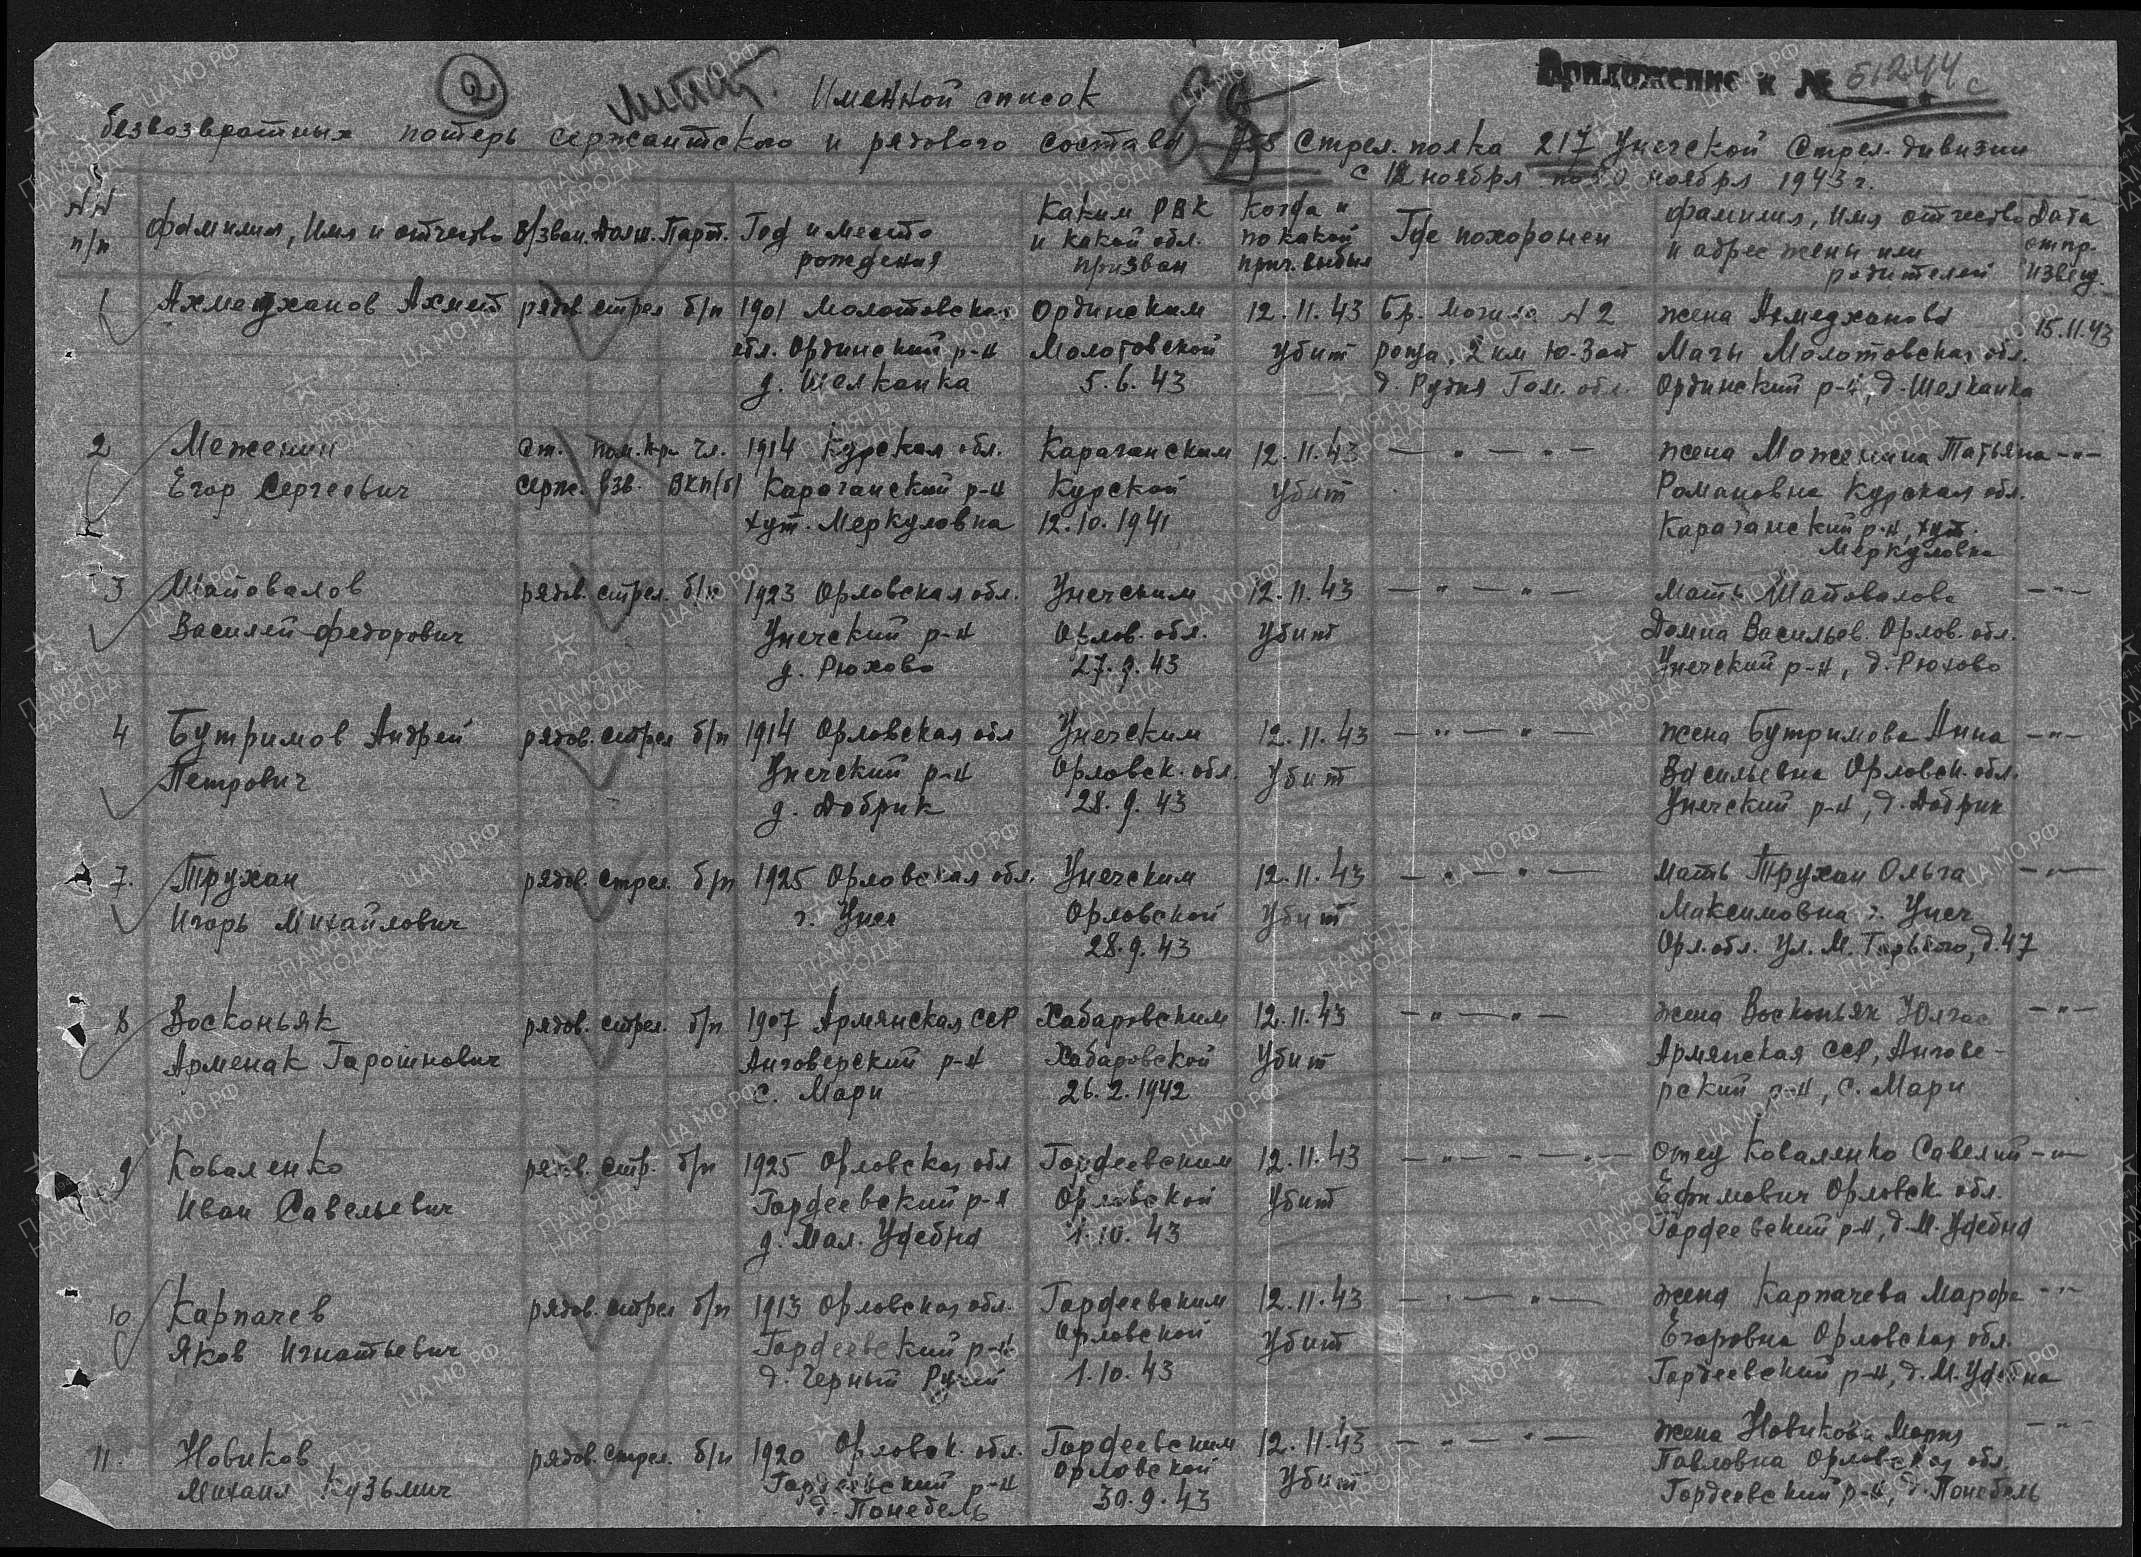 2
Приложение к № 51244 с
Именной список
безвозвратных потерь сержантского и рядового состава 755 Стрел. полка 217 Унечской Стрел. дивизии
с 12 ноября по ноября 1943 г.
NN п/п
фамилия, Имя и отчество
В/зван. Долж. Парт.
Год и место рождения
Каким РВК и какой обл. призван
Когда и по какой прич. выбыл
Где похоронен
фамилия, имя отчество и адрес жены или родителей
Дата отпр. извещ.
1 Ахмедханов Ахмет рядов. стрел б/п 1901 Молотовская Ординским 12.11.43 Бр. могила N 2 жена Ахмедханова 15.11.43
обл. Ординский р-н Молотовской Убит роща. 2 км Ю-Зап Мачы Молотовская обл.
д. Шелканка 5.6.43 д. Рудня Гом. обл. Ординский р-н, д. Шелканка
2 Меженин ст. пом. кр. чл. 1914 Курская обл. Караганским 12.11.43 — " — " — жена Моженина Татьяна — " —
Егор Сергеевич серж. взв. ВКП(б) Караганский р-н Курской Убит Романовна Курская обл.
хут. Меркуловка 12.10.1941 Караганский р-н, хут.
Меркуловка
3 Шаповалов рядов. стрел. б/п 1923 Орловская обл. Унечским 12.11.43 — " — " — Мать Шаповалова — " —
Василий Федорович Унечский р-н Орлов. обл. Убит Домна Васильев. Орлов. обл.
д. Рюхово 27.9.43 Унечский р-н, д. Рюхово
4 Бутримов Андрей рядов. стрел б/п 1914 Орловская обл Унечским 12.11.43 — " — " — жена Бутримова Анна — " —
Петрович Унечский р-н Орловск. обл. Убит Васильевна Орловск. обл.
д. Добрик 28.9.43 Унечский р-н, д. Добрик
7. Трухан рядов. стрел. б/п 1925 Орловская обл. Унечским 12.11.43 — " — " — мать Трухан Ольга — " —
Игорь Михайлович г. Унеч Орловской Убит Максимовна г. Унеч
28.9.43 Орл. обл. ул. М. Горького, д. 47
8 Восконьяк рядов. стрел. б/п 1907 Армянская ССР Хабаровским 12.11.43 — " — " — жена Восконьяк — " —
Арменак Гарошнович Анговерский р-н Хабаровской Убит Армянская ССР, Ангове-
с. Мари 26.2.1942 рский р-н, с. Мари
9 Коваленко рядов. стр. б/п 1925 Орловская обл Гордеевским 12.11.43 — " — " — отец Коваленко Савелий — " —
Иван Савельевич Гордеевский р-н Орловской Убит Ефимович Орловск. обл.
д. Мал. Удебна 1.10.43 Гордеевский р-н, д. М. Удебна
10 Карпачев рядов. стрел б/п 1913 Орловская обл. Гордеевским 12.11.43 — " — " — жена Карпачева Марфа — " —
Яков Игнатьевич Гордеевский р-н Орловской Убит Егоровна Орловская обл.
д. Черный Ручей 1.10.43 Гордеевский р-н, д. М. Удебна
11. Новиков рядов. стрел. б/п 1920 Орловск. обл. Гордеевским 12.11.43 — " — " — жена Новикова Мария — " —
Михаил Кузьмич Гордеевский р-н Орловской Убит Павловна Орловская обл.
д. Понебель 30.9.43 Гордеевский р-н, д. Понебель